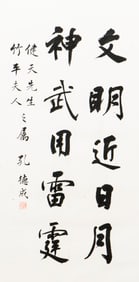 文明近日月
神武用雷霆
健天先生
竹平夫人之属 孔德成